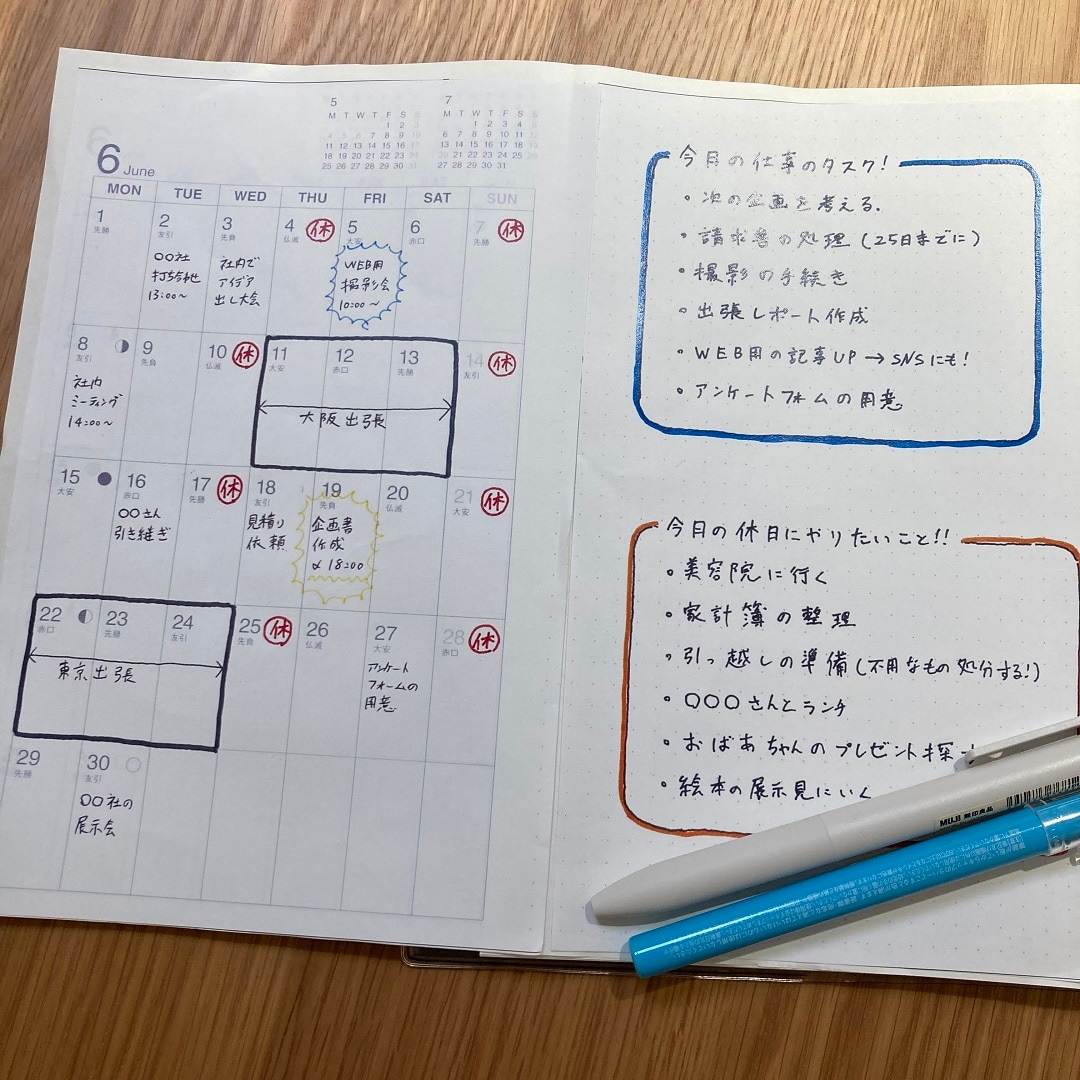 5
M T W T F S S
1 2 3
4 5 6 7 8 9 10
11 12 13 14 15 16 17
18 19 20 21 22 23 24
25 26 27 28 29 30 31
7
M T W T F S S
1 2 3 4 5
6 7 8 9 10 11 12
13 14 15 16 17 18 19
20 21 22 23 24 25 26
27 28 29 30 31
6 June
MON TUE WED THU FRI SAT SUN
1 2 3 4 休 5 6 7 休
先勝 友引 先負 仏滅 大安 赤口 先勝
〇〇社
打ち合わせ
13:00〜
社内で
アイデア
出し大会
WEB用
撮影会
10:00〜
8 9 10 休 11 12 13 14 休
友引 先負 仏滅 大安 赤口 先勝 友引
社内
ミーティング
14:00〜
大阪出張
15 16 17 休 18 19 20 21 休
大安 赤口 先勝 友引 先負 仏滅 大安
〇〇さん
引き継ぎ
見積り
依頼
企画書
作成
〆18:00
22 23 24 25 休 26 27 28 休
赤口 先勝 友引 先負 仏滅 大安 赤口
東京出張
アンケート
フォームの
用意
29 30
先勝 友引
〇〇社の
展示会
今月の仕事のタスク!
・次の企画を考える.
・請求書の処理(25日までに)
・撮影の手続き
・出張レポート作成
・WEB用の記事UP→SNSにも!
・アンケートフォームの用意
今月の休日にやりたいこと!!
・美容院に行く
・家計簿の整理
・引っ越しの準備(不用なもの処分する!)
・〇〇〇さんとランチ
・おばあちゃんのプレゼント探す
・絵本の展示見にいく
MUJI 無印良品